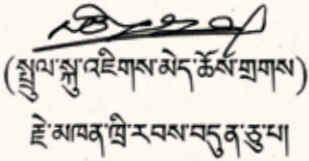 (སྤྲུལ་སྐུ་འཇིགས་མེད་ཆོས་གྲགས)
རྗེ་མཁན་ཁྲི་རབས་བདུན་ཅུ་པ།